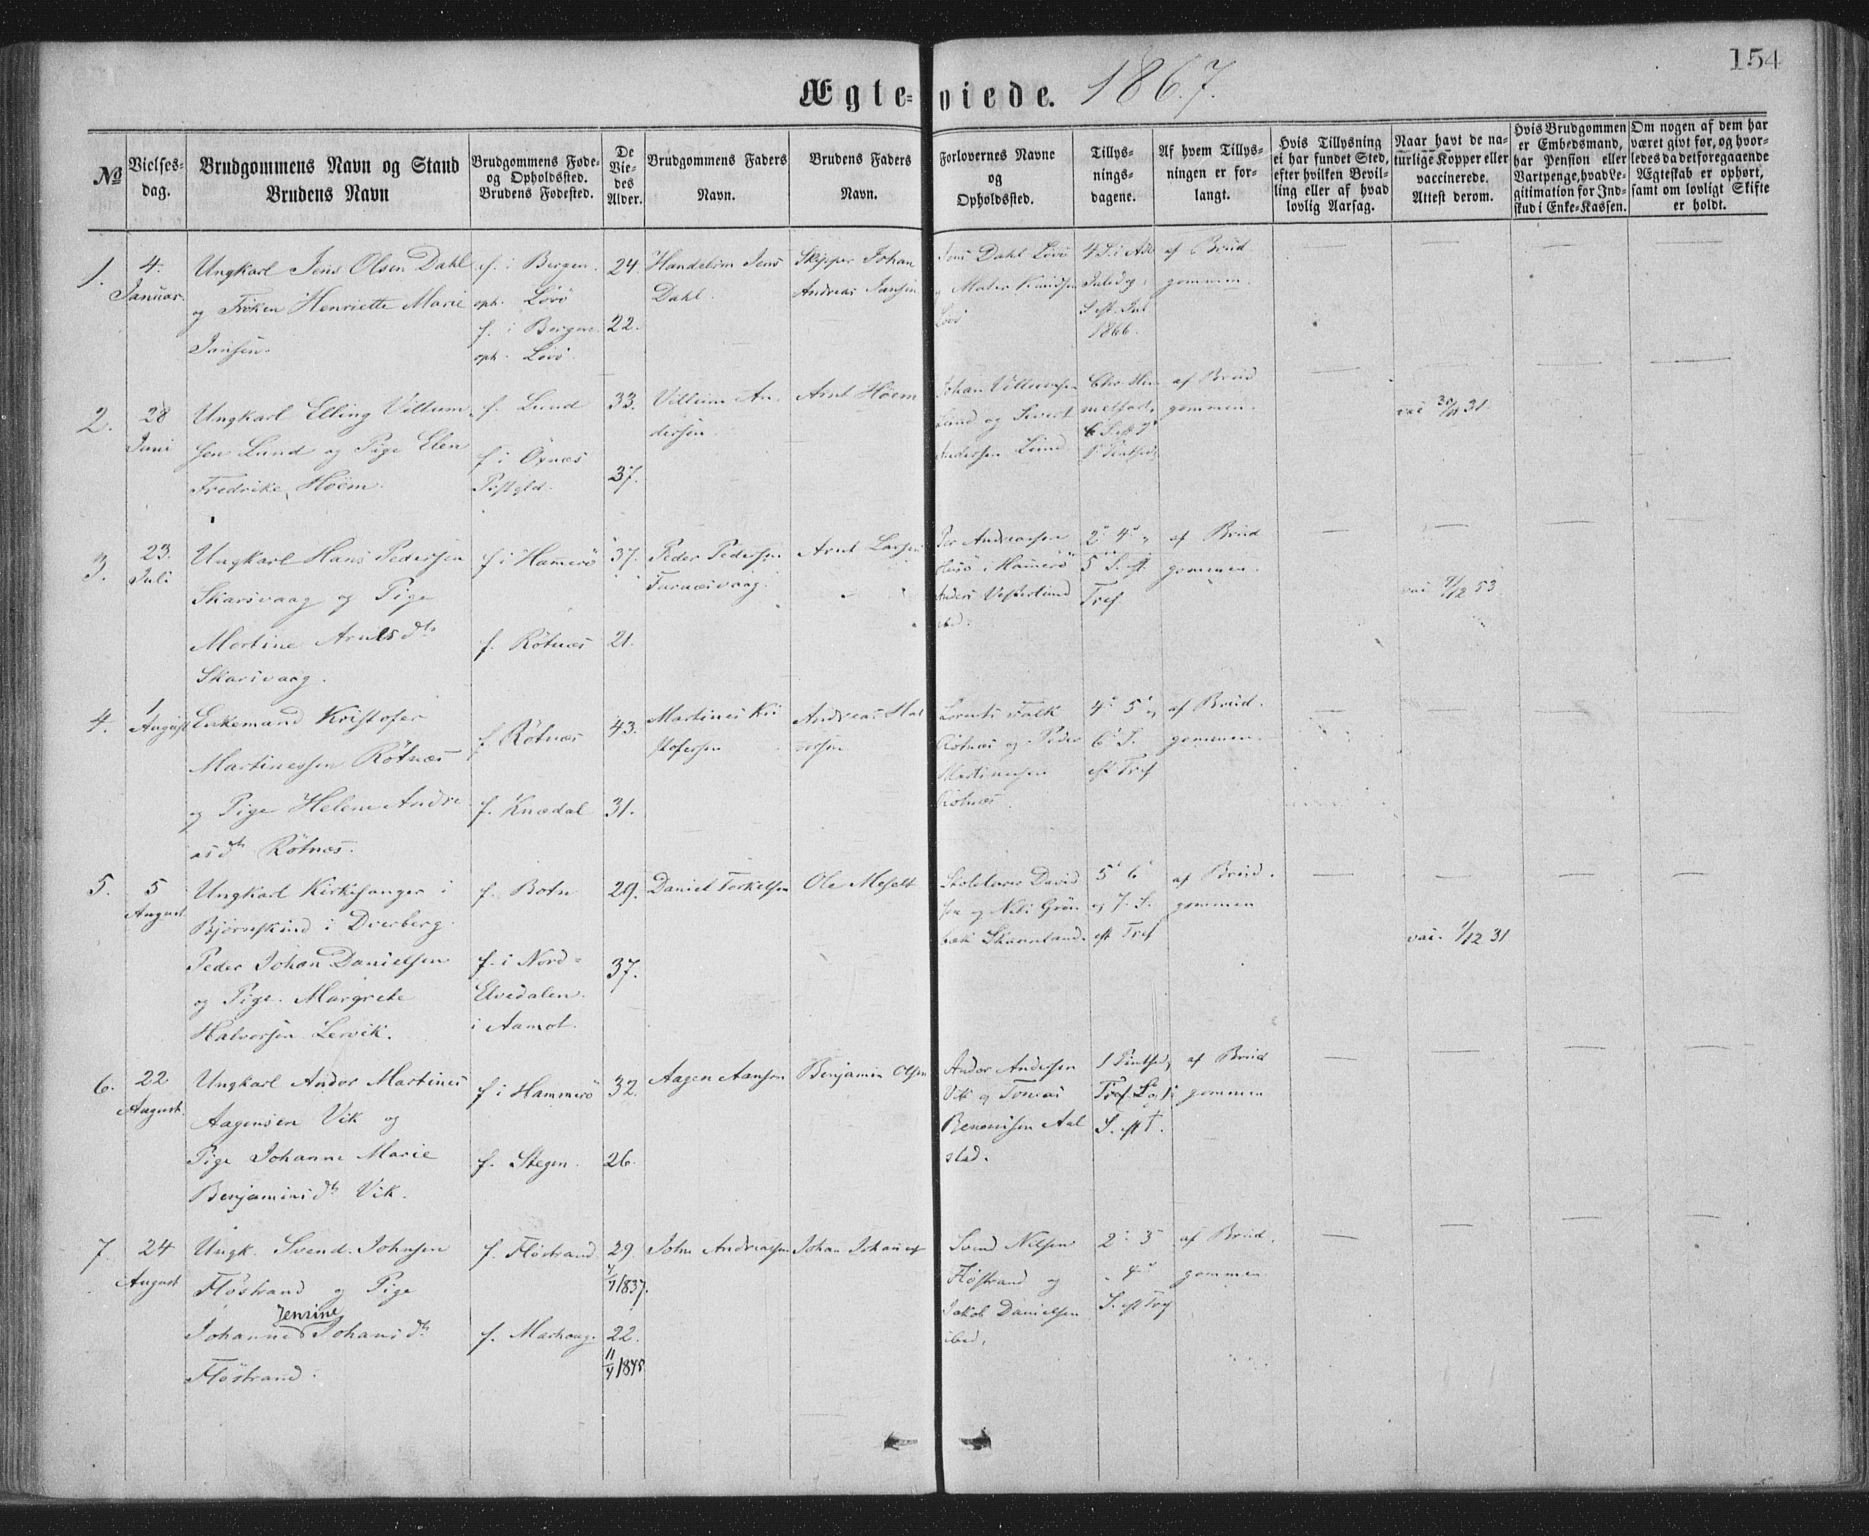 154
Ægte-viede. 1867.
№
Vielses-
dag.
Brudgommens Navn og Stand
Brudens Navn
Brudgommens Føde-
og Opholdssted.
Brudens Fødested.
De
Vie-
des
Alder.
Brudgommens Faders
Navn.
Brudens Faders
Navn.
Forlovernes Navne
og
Opholdssted.
Tillys-
nings-
dagene.
Af hvem Tillys-
ningen er for-
langt.
Hvis Tillysning
ei har fundet Sted,
efter hvilken Bevil-
ling eller af hvad
lovlig Aarsag.
Naar havt de na-
turlige Kopper eller
vaccinerede.
Attest derom.
Hvis Brudgommen
er Embedsmand,
har Pension eller
Vartpenge, hvad Le-
gitimation for Ind-
skud i Enke-Kassen.
Om nogen af dem har
været givt før, og hvor-
ledes da det foregaaende
Ægteskab er ophørt,
samt om lovligt Skifte
er holdt.
1.
4.
Januar.
Ungkarl Jens Olsen Dahl
og Frøken Henriette Marie
Jansen.
f. i Bergen.
oph. Lovö
f. i Bergen.
oph. Lovö.
24
22.
Handelsm Jens
Dahl.
Skipper Johan
Andreas Jansen
Jens Dahl Lovö
Knudsen
Lovö
4 S. i Ad
Juledag,
S. eft. Jul
1866.
af Brud
gommen.
2.
28
Juni
Ungkarl Elling Villum
sen Lund og Pige Elen
Fredrike Höem.
f. Lund
f. i Öxnæs
Pgld.
33.
37.
Villum An
dersen
Arnt Höem
Johan Villumsen
Lund og Sivert
Andersen Lund
af Brud
gommen.
vac 30/11 31.
3.
23.
Juli
Ungkarl Hans Pedersen
Skarsvaag og Pige
Martine Arntsdtr
Skarsvaag.
f. i Hamerö
f. Rötnæs
37.
21.
Peder Pedersen
Furnæsvaag.
Arnt Larsen
Per Andreassen
i Hamerö
Anders Vesterlund
2' 4'
5' S. eft.
Tref
af Brud
gommen.
vac 9/12 53.
4.
1
August
Enkemand Kristofer
Martinessen Rötnæs
og Pige Helene Andre
asdtr Rötnæs.
f. Rötnæs
f. Knædal
43.
31.
Martines Kri
stofersen
Andreas Hal
vorsen
Lorents Falk
Rötnæs og Peder
Martinessen
Rötnæs.
4' 5' og
6' S.
eft Tref
af Brud.
gommen.
5.
5
August
Ungkarl Kirkesanger i
Björnskind i Dverberg
Peder Johan Danielsen
og Pige Margrete
Halvorsen Lervik.
f. Botn
f. i Nord-
Elvedalen.
i Aamot.
29.
37.
Daniel Torkelsen
Ole Moselt
Skolelærer David
sen og Nils Grön
bæk Skannland.
5' 6'
og 7. S.
eft Tref
af Brud.
gommen
vac. 9/12 31
6.
22
August.
Ungkarl Andor Martines
Aagensen Vik og
Pige Johanne Marie
Benjaminsdtr Vik.
f. i Hammerö
f. Stegen.
32.
26.
Aagen Aansen
Benjamin Olsen
Andor Andersen
Vik og Tomas
Benonisen Aal
stad.
1 Pintsed,
Tref. S og 1'
S. eft T.
af Brud
gommen
7.
24
August
Ungk. Svend Johnsen
Flöstrand og Pige
Jensine
Johanne Johansdtr
Flöstrand.
f. Flöstrand
f. Marhaug.
29.
4/7 1837.
22.
11/4 1845
John Andreassen
Johan Johanes
Svend Nilsen
Flöstrand og
Jakob Danielsen
ibid.
2' 3'
4'
S. eft Tref
af Brud.
gommen